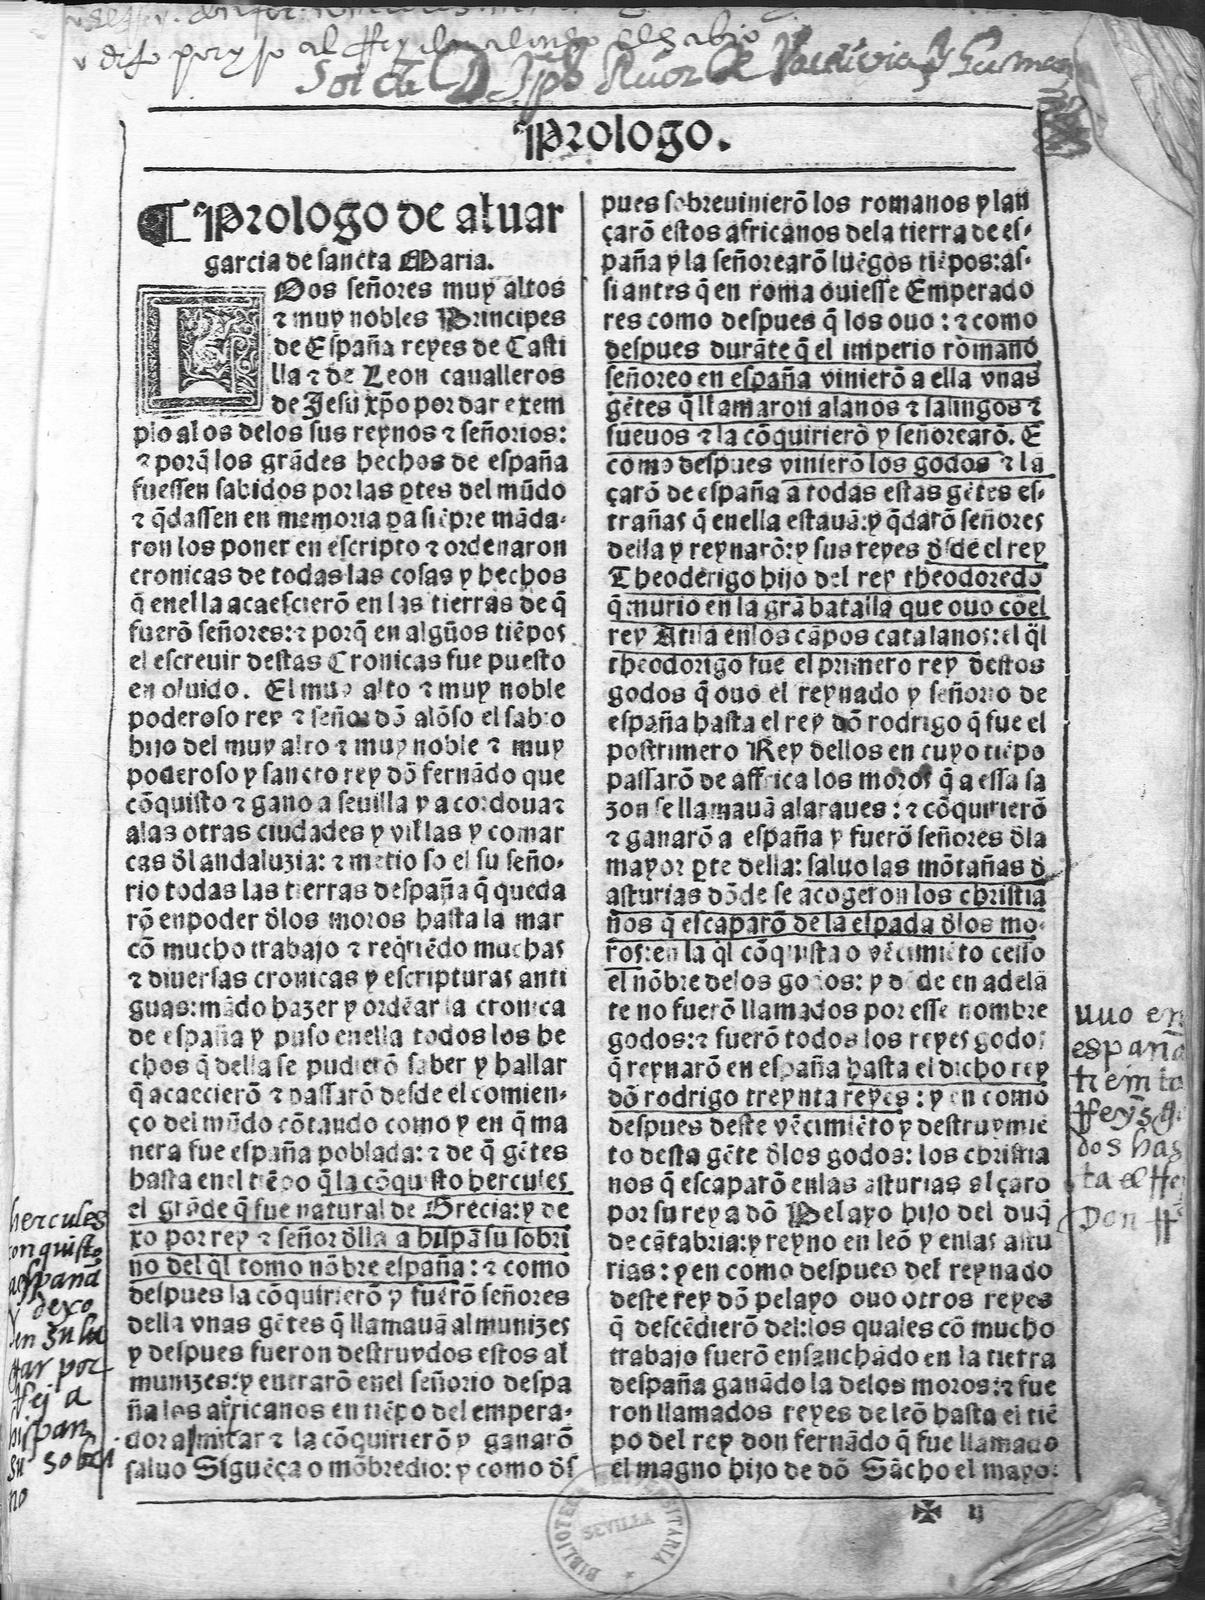 Prologo.
¶ Prologo de aluar
garcia de sancta Maria.
LOos señores muy altos
⁊ muy nobles Principes
de España reyes de Casti
lla ⁊ de Leon caualleros
de Jesu xp̄o por dar exem
plo alos delos sus reynos ⁊ señorios:
⁊ porq̄ los grādes hechos de españa
fuessen sabidos por las ꝑtes del mūdo
⁊ q̄dassen en memoria pa siēpre māda-
ron los poner en escripto ⁊ ordenaron
cronicas de todas las cosas y hechos
q̄ enella acaescierō en las tierras de q̄
fuerō señores: ⁊ porq̄ en algūos tiēpos
el escreuir destas Cronicas fue puesto
en oluido. El muy alto ⁊ muy noble
poderoso rey ⁊ señor dō alōso el sabio
hijo del muy alto ⁊ muy noble ⁊ muy
poderoso y sancto rey dō fernādo que
cōquisto ⁊ gano a seuilla y a cordoua ⁊
alas otras ciudades y villas y comar
cas dl andaluzia: ⁊ metio so el su seño-
rio todas las tierras despaña q̄ queda
rō en poder dlos moros hasta la mar
cō mucho trabajo ⁊ reqriēdo muchas
⁊ diuersas cronicas y escripturas anti
guas: mādo hazer y ordēar la cronica
de españa y puso enella todos los he
chos q̄ della se pudierō saber y hallar
q̄ acaecierō ⁊ passarō desde el comien-
ço del mūdo cōtando como y en q̄ ma
nera fue españa poblada: ⁊ de q̄ gētes
hasta enel tiēpo q̄ la cōquisto hercules
el grāde q̄ fue natural de Grecia: y de
xo por rey ⁊ señor dlla a hispā su sobri
no del q̄l tomo nōbre españa: ⁊ como
despues la cōquirierō y fuerō señores
della vnas gētes q̄ llamauā almunizes
y despues fueron destruydos estos al
munizes: y entrarō enel señorio despa
ña los africanos en tiēpo del empera-
dor almitar ⁊ la cōquirierō y ganarō
saluo Siguēça o mōbredio: y como ds
pues sobreuinierō los romanos y lan
çarō estos africanos dela tierra de es-
paña y la señorearō luēgos tiēpos: as-
si antes q̄ en roma ouiesse Emperado
res como despues q̄ los ouo: ⁊ como
despues durāte q̄ el imperio romano
señoreo en españa vinierō a ella vnas
gētes q̄ llamaron alanos ⁊ salingos ⁊
sueuos ⁊ la cōquirierō y señorearō. E
como despues vinierō los godos ⁊ la
çarō de españa a todas estas gētes es-
trañas q̄ enella estauā: y q̄darō señores
della y reynarō: y sus reyes dsde el rey
Theoderigo hijo del rey theodoredo
q̄ murio en la grā batalla que ouo cōel
rey Atila enlos cāpos catalanos: el q̄l
theodorigo fue el primero rey destos
godos q̄ ouo el reynado y señorio de
españa hasta el rey dō rodrigo q̄ fue el
postrimero Rey dellos en cuyo tiēpo
passarō de affrica los moros q̄ a essa sa
zon se llamauā alaraues: ⁊ cōquirierō
⁊ ganarō a españa y fuerō señores dla
mayor ꝑte della: saluo las mōtañas d
asturias dōde se acogeron los christia
nos q̄ escaparō de la espada dlos mo-
ros: en la q̄l cōquista o vēcimiēto cesso
el nōbre delos godos: y dēde en adelā
te no fuerō llamados por esse nombre
godos: ⁊ fuerō todos los reyes godos
q̄ reynarō en españa hasta el dicho rey
dō rodrigo treynta reyes: y en como
despues deste vēcimiēto y destruymiē
to desta gēte dlos godos: los christia
nos q̄ escaparō enlas asturias alçaro
por su rey a dō Pelayo hijo del duq̄
de cātabria: y reyno en leō y enlas astu
rias: y en como despues del reynado
deste rey dō pelayo ouo otros reyes
q̄ descēdierō del: los quales cō mucho
trabajo fuerō ensanchādo en la tierra
despaña ganādo la delos moros: ⁊ fue
ron llamados reyes de leō hasta el tiē
po del rey don fernādo q̄ fue llamado
el magno hijo de dō Sācho el mayor
✠ ij
hercules
conquisto
aespaña
y dexo
en su lu
gar por
Rej a
hispan
su sobri
no
uuo en
españa
treinta
Reys go
dos has
ta el Re
Don R
BIBLIOTECA UNIVERSITARIA
SEVILLA